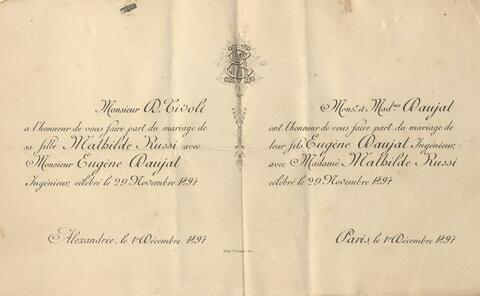 Monsieur D. Tivoli
a l'honneur de vous faire part du mariage de
sa fille Mathilde Russi avec
Monsieur Eugène Daujat
Ingénieur, célébré le 29 Novembre 1897
Alexandrie, le 1er Décembre 1897
Mons. & Madme Daujat
ont l'honneur de vous faire part du mariage de
leur fils Eugène Daujat Ingénieur,
avec Madame Mathilde Russi
célébré le 29 Novembre 1897
Paris, le 1er Décembre 1897